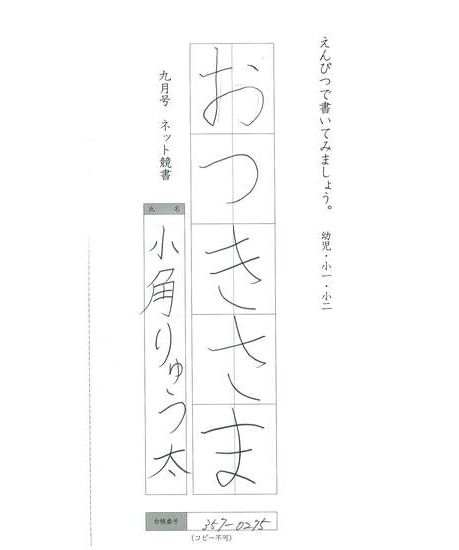 えんぴつで書いてみましょう。 幼児・小一・小二
おつきさま
九月号 ネット競書
氏 名
小角りゅう太
台帳番号 357-0275
(コピー不可)